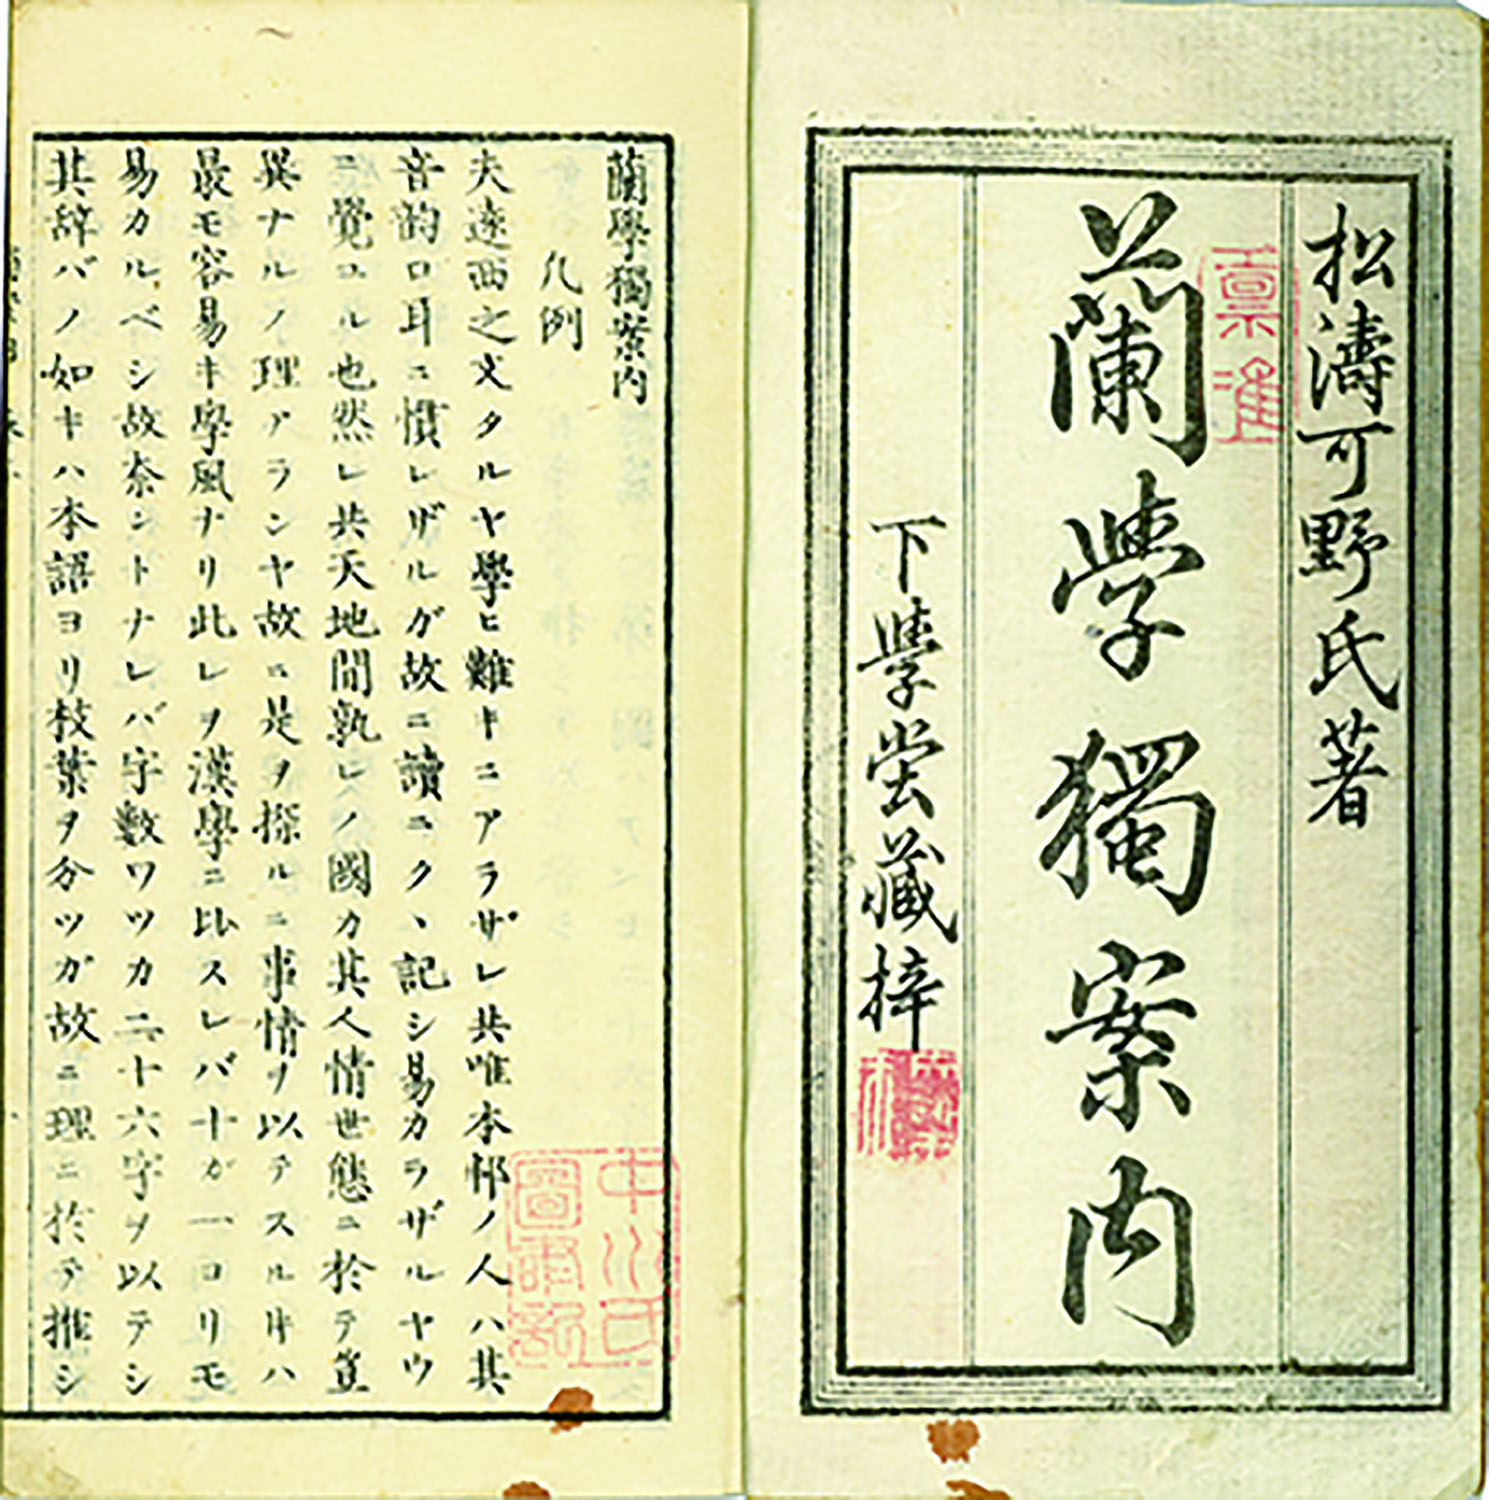 松濤可野氏著
稟准
蘭學獨案内
下學堂藏梓
蘭學獨案内
凡例
夫遠西之文タルヤ學ヒ難キニアラザレ共唯本邦ノ人ハ其
音韵ロ耳ニ慣レザルガ故ニ讀ニクヽ記シ易カラザルヤウ
ニ覺ユル也然レ共天地間孰レノ國カ其人情世態ニ於テ豈
異ナルノ理アランヤ故ニ是ヲ探ルニ事情ヲ以テスルキハ
最モ容易キ學風ナリ此レヲ漢學ニ比スレバ十ガ一ヨリモ
易カルベシ故奈ントナレバ字數ワツカニ二十六字ヲ以テシ
其辞バノ如キハ本語ヨリ枝葉ヲ分ツガ故ニ理ニ於テ推シ
中川氏
圖書記